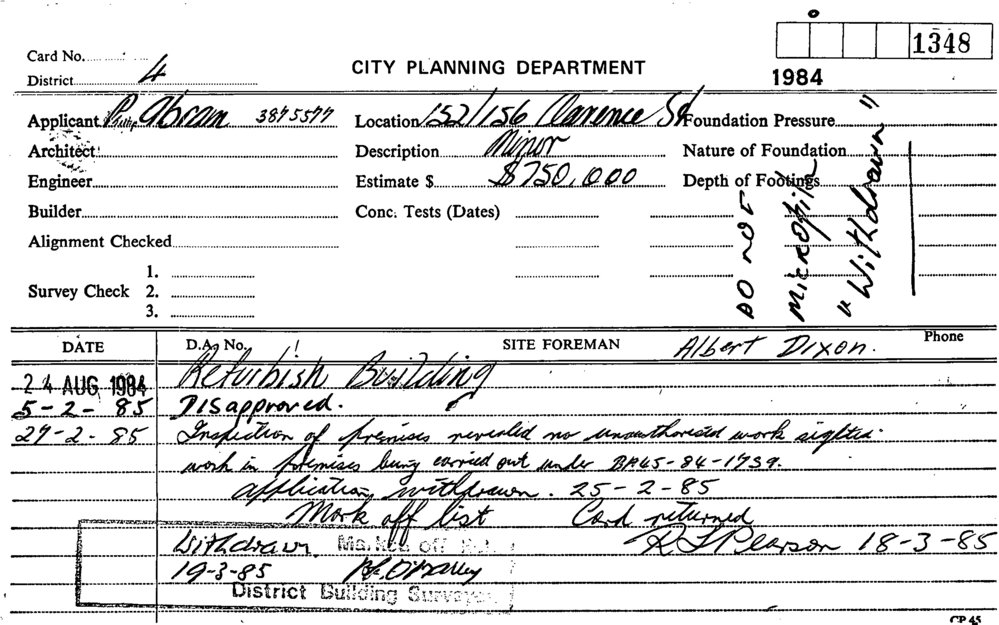 1348
Card No.
CITY PLANNING DEPARTMENT
1984
District 4
Applicant Phillip Abram 3875577
Location 152/156 Clarence St
Foundation Pressure
Architect
Description Minor
Nature of Foundation
Engineer
Estimate $ $750,000
Depth of Footings
Builder
Conc. Tests (Dates)
Alignment Checked
1.
Survey Check 2.
3.
DO NOT
MICROFILM
"Withdrawn"
DATE
D.A. No.
SITE FOREMAN Albert Dixon.
Phone
24 AUG 1984 Refurbish Building
5-2-85 Disapproved.
27-2-85 Inspection of premises revealed no unauthorised work sighted.
work in premises being carried out under BA45-84-1739.
application withdrawn. 25-2-85
Mark off list Card returned
Withdrawn. Marked off R L Pearson 18-3-85
19-3-85
District Building Surveyor
CP 45